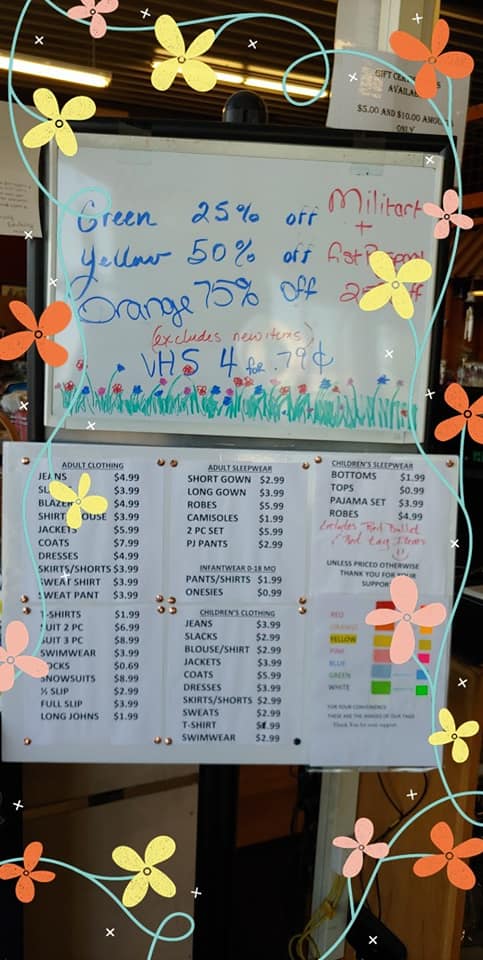 GIFT
AVAILA
$5.00 AND $10.00
ONLY
Green 25% off
Yellow 50% off
Orange 75% off
Military
+
(excludes new items)
VHS 4 for .79¢
ADULT CLOTHING
JEANS $4.99
$3.99
BLAZER $4.99
SHIRT $3.99
JACKETS $5.99
COATS $7.99
DRESSES $4.99
SKIRTS/SHORTS $3.99
SWEAT SHIRT $3.99
SWEAT PANT $3.99
T-SHIRTS $1.99
SUIT 2 PC $6.99
SUIT 3 PC $8.99
SWIMWEAR $3.99
SOCKS $0.69
SNOWSUITS $8.99
½ SLIP $2.99
FULL SLIP $3.99
LONG JOHNS $1.99
ADULT SLEEPWEAR
SHORT GOWN $2.99
LONG GOWN $3.99
ROBES $5.99
CAMISOLES $1.99
2 PC SET $5.99
PJ PANTS $2.99
INFANTWEAR 0-18 MO
PANTS/SHIRTS $1.99
ONESIES $0.99
CHILDREN'S CLOTHING
JEANS $3.99
SLACKS $2.99
BLOUSE/SHIRT $2.99
JACKETS $3.99
COATS $5.99
DRESSES $3.99
SKIRTS/SHORTS $2.99
SWEATS $2.99
T-SHIRT
SWIMWEAR $2.99
CHILDREN'S SLEEPWEAR
BOTTOMS $1.99
TOPS $0.99
PAJAMA SET $3.99
ROBES $4.99
Excludes Red Bullet
Red tag Items
UNLESS PRICED OTHERWISE
THANK YOU FOR YOUR
SUPPORT
RED
ORANGE
YELLOW
PINK
BLUE
GREEN
WHITE
FOR YOUR CONVENIENCE
THESE ARE THE SHADES OF OUR TAGS
Thank You for your support